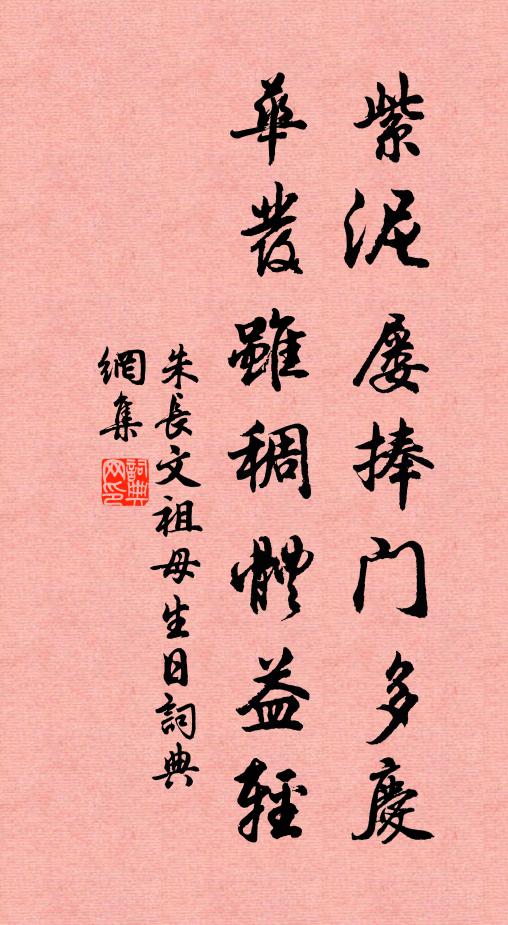 紫泥屡捧门多慶
華發雖稠體益輕
朱長文祖母生日詞典
網集
詞典
网印